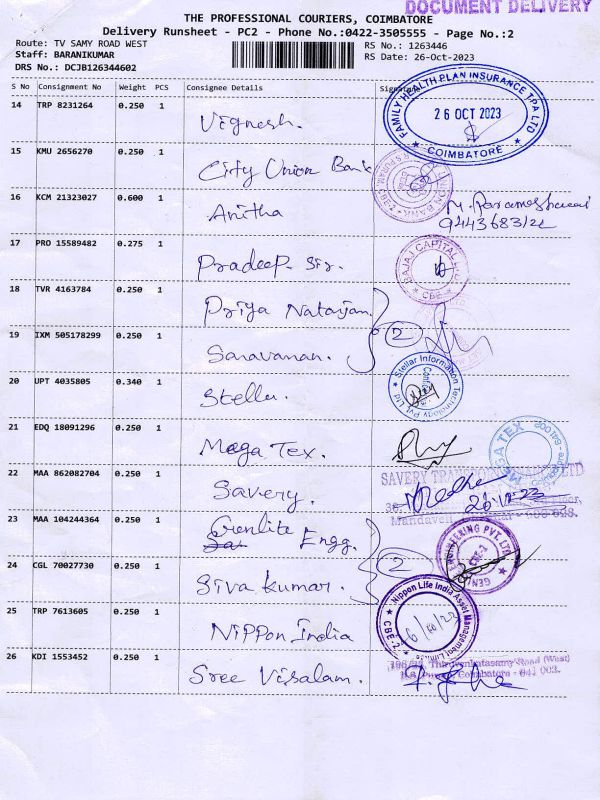 DOCUMENT DELIVERY
THE PROFESSIONAL COURIERS, COIMBATORE
Delivery Runsheet - PC2 - Phone No.:0422-3505555 - Page No.:2
Route: TV SAMY ROAD WEST
RS No.: 1263446
Staff: BARANIKUMAR
RS Date: 26-Oct-2023
DRS No.: DCJB126344602
S No Consignment No Weight PCS Consignee Details
14 TRP 8231264 0.250 1 Vignesh.
FAMILY HEALTH PLAN INSURANCE TPA LTD
26 OCT 2023
COIMBATORE
15 KMU 2656270 0.250 1 City Union Bank
16 KCM 21323027 0.600 1 Anitha
17 PRO 15589482 0.275 1 Pradeep Sir.
BAJAJ CAPITAL
CBE
18 TVR 4163784 0.250 1 Priya Natarjan.
2
19 IXM 505178299 0.250 1 Saravanan.
20 UPT 4035805 0.340 1 Stellar.
Stellar Information Technology Pvt Ltd
21 EDQ 18091296 0.250 1 Mega Tex.
MEGA TEX
22 MAA 862082704 0.250 1 Savery.
23 MAA 104244364 0.250 1 Genlite Engg.
2
ENGINEERING PVT. LTD
24 CGL 70027730 0.250 1 Siva kumar.
25 TRP 7613605 0.250 1 Nippon India
Nippon Life India Asset Management Limited
CBE-2
26 KDI 1553452 0.250 1 Sree Visalam.
Coimbatore - 641 002.